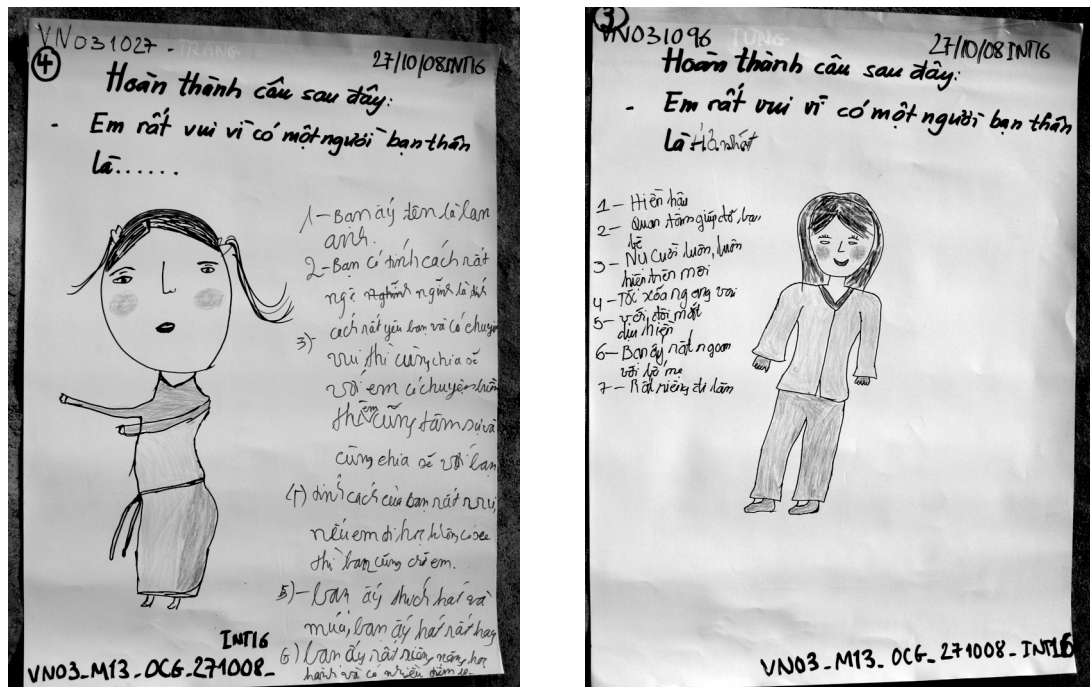 VN031027 - TRANG
④
27/10/08 INT16
Hoàn thành câu sau đây:
- Em rất vui vì có một người bạn thân
là......
1 - Bạn ấy tên là lan
anh.
2 - Bạn có tính cách rất
ngộ
cách rất yêu bạn và có chuyện
3)
vui thì cũng chia sẻ
với em có chuyện buồn
thì em cũng tâm sự và
cũng chia sẻ với bạn
(4) tính cách của bạn rất vui,
nếu em đi học không có xe
thì bạn cũng chở em.
5) - bạn ấy thích hát và
múa, bạn ấy hát rất hay
6) bạn ấy rất siêng năng học
hành và có nhiều điểm
INT16
VN03_M13_OCG_271008_
③
VN031096 TUNG
27/10/08 INT16
Hoàn thành câu sau đây:
- Em rất vui vì có một người bạn thân
là
1 - Hiền hậu
2 - Quan tâm giúp đỡ bạn
bè
3 - Nụ cười luôn, luôn
hiện trên môi
4 - Tóc xõa ngang vai
5 - với đôi mắt
dịu hiền
6 - Bạn ấy rất ngoan
với bố mẹ
7 - Rất siêng đi làm
VN03_M13_OCG_271008_INT16